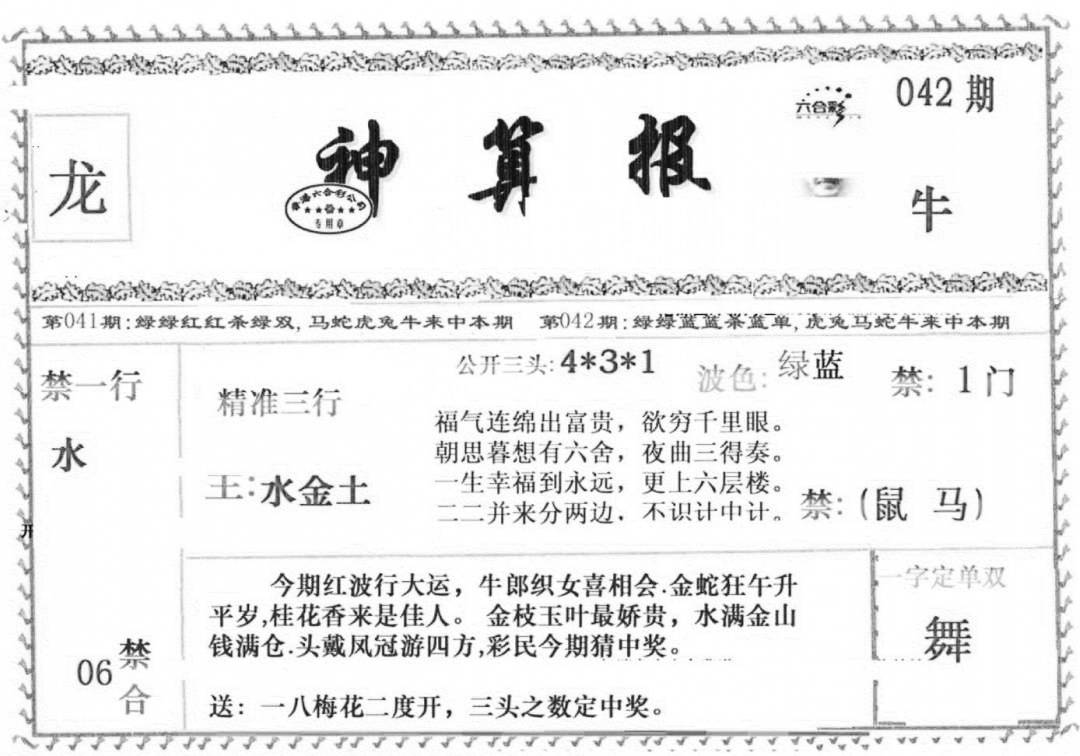 042期
六合彩
龙
神算报
香港六合彩公司
专用章
牛
第041期:绿绿红红杀绿双,马蛇虎兔牛来中本期 第042期:绿绿蓝蓝杀蓝单,虎兔马蛇牛来中本期
禁一行
水
精准三行
王:水金土
公开三头:4*3*1
波色:绿蓝
禁:1门
福气连绵出富贵，欲穷千里眼。
朝思暮想有六舍，夜曲三得奏。
一生幸福到永远，更上六层楼。
二二并来分两边，不识计中计。
禁:(鼠 马)
开
今期红波行大运，牛郎织女喜相会.金蛇狂午升
平岁,桂花香来是佳人。金枝玉叶最娇贵，水满金山
钱满仓.头戴凤冠游四方,彩民今期猜中奖。
送：一八梅花二度开，三头之数定中奖。
一字定单双
舞
06
禁
合